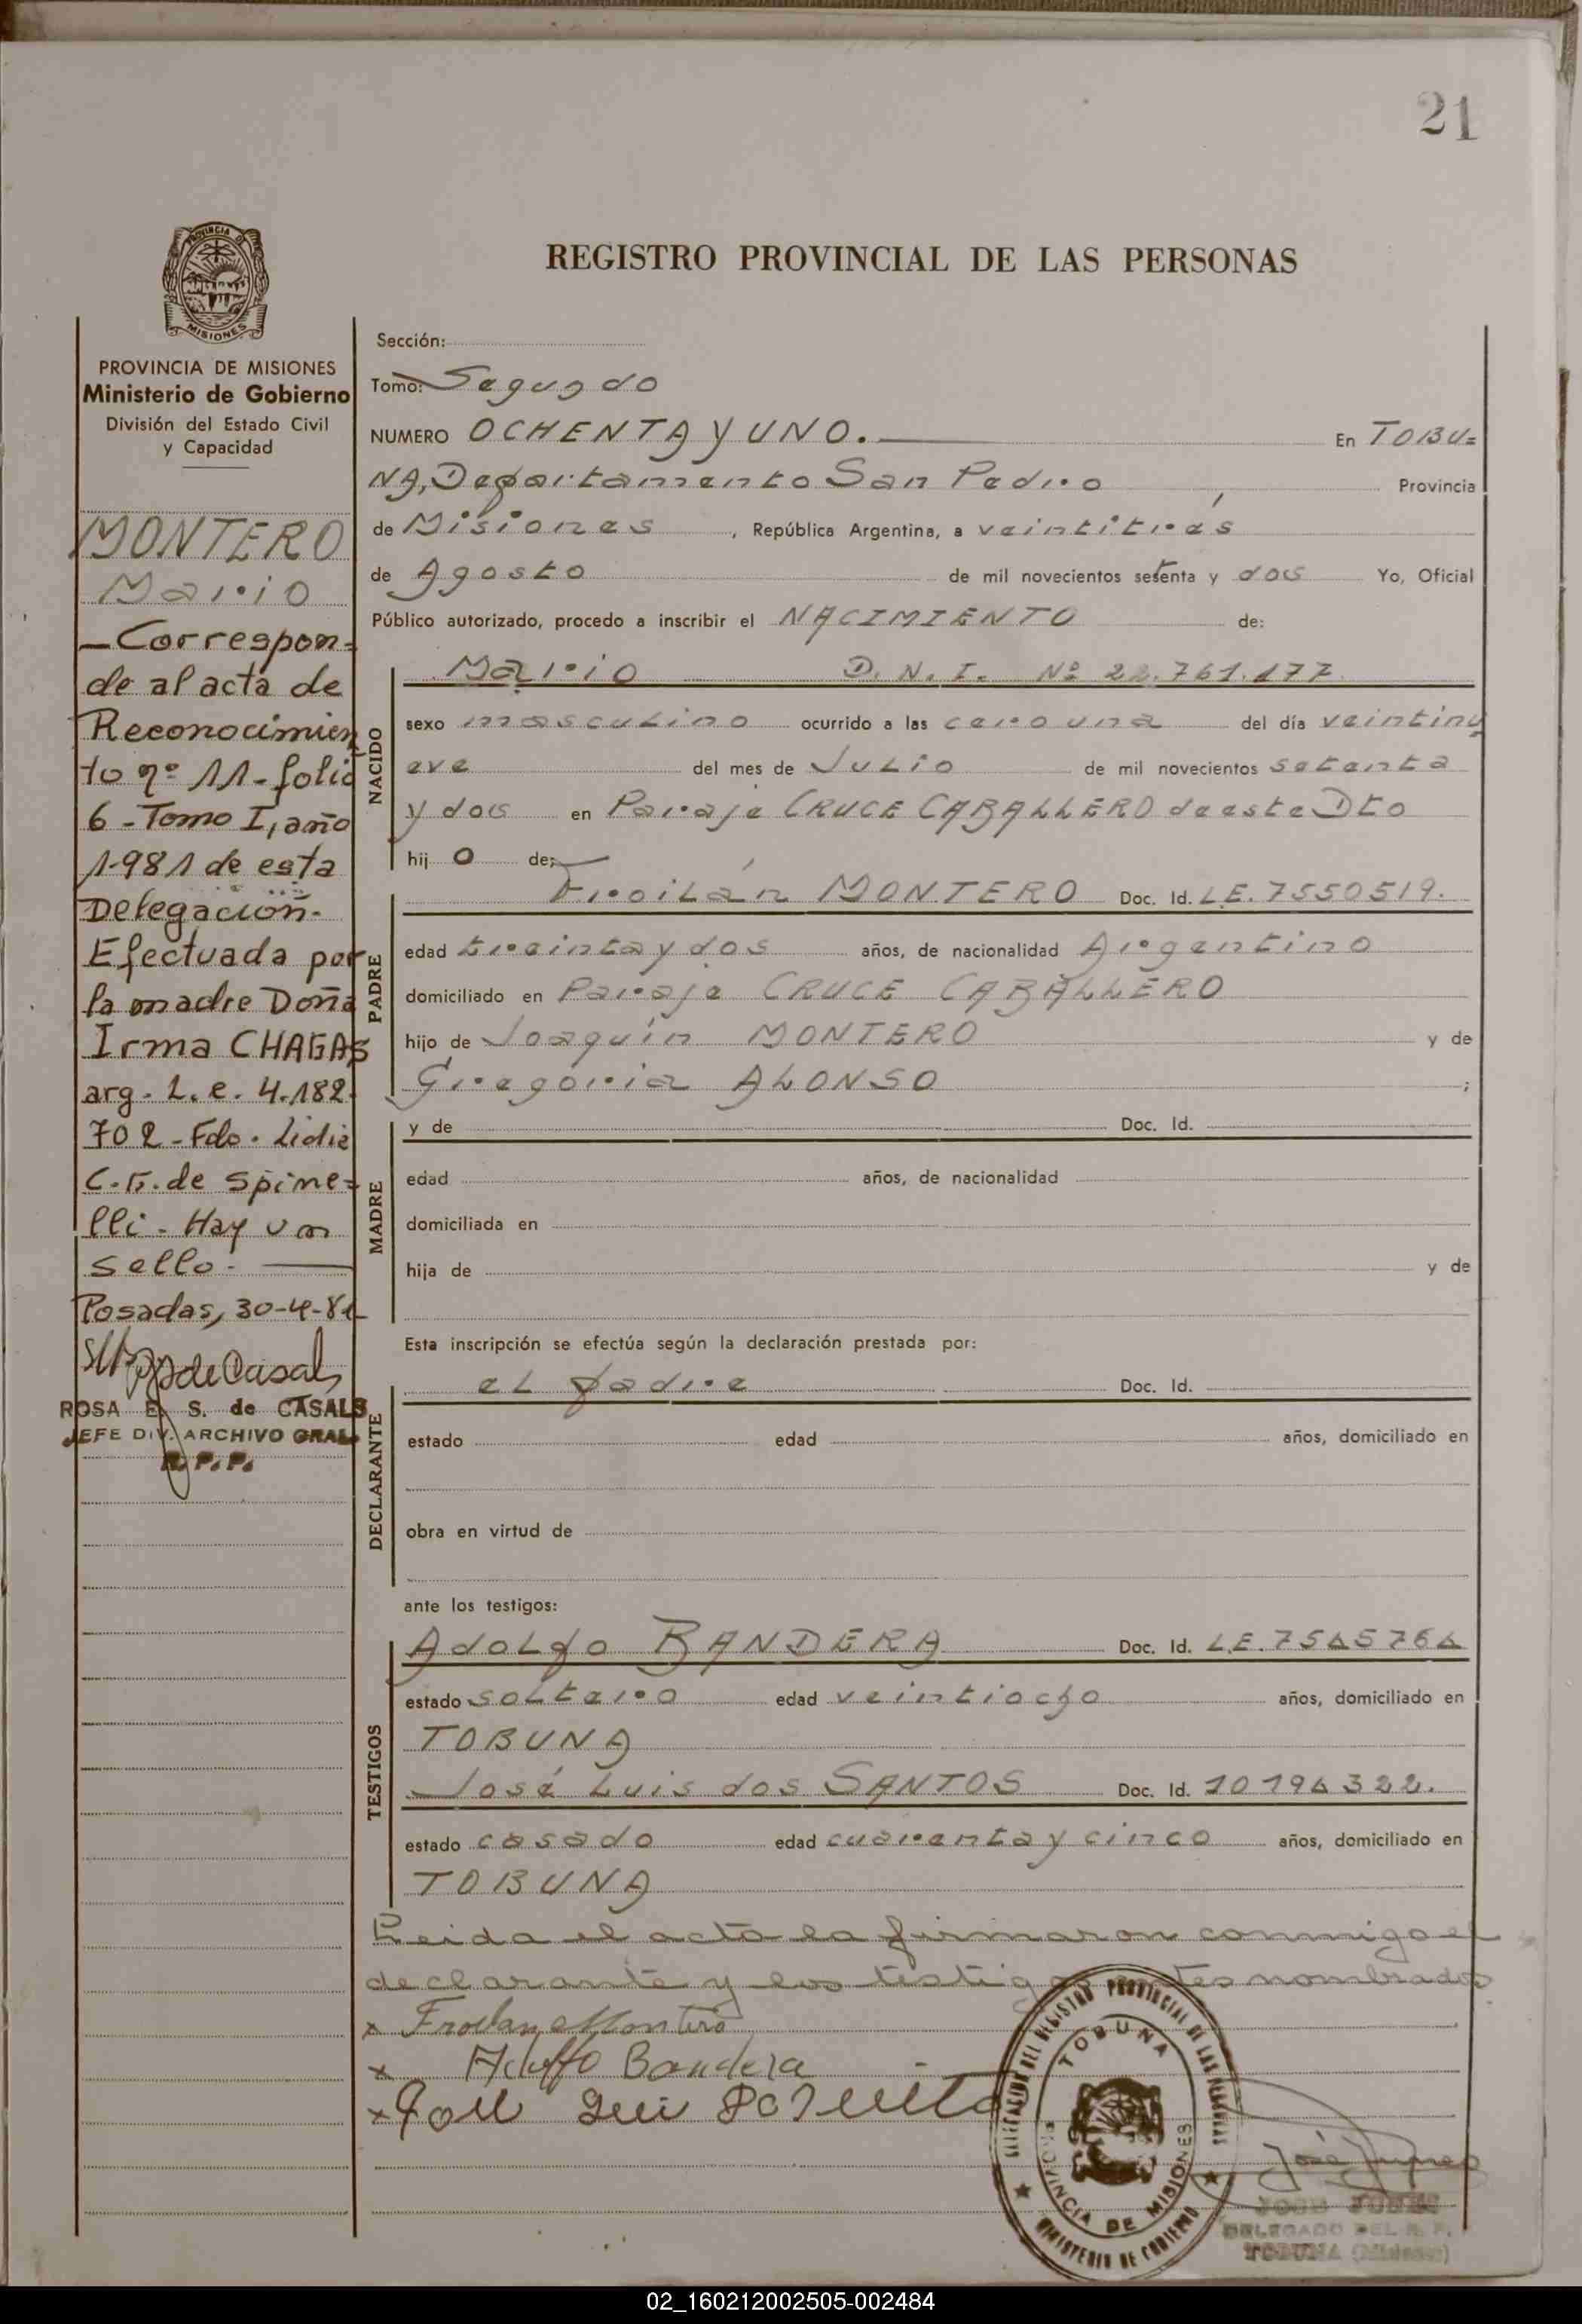 21
PROVINCIA DE
MISIONES
REGISTRO PROVINCIAL DE LAS PERSONAS
PROVINCIA DE MISIONES
Ministerio de Gobierno
División del Estado Civil
y Capacidad
MONTERO
Mario
- Correspon=
de al acta de
Reconocimien
to nº 11 - folio
6 - Tomo I, año
1981 de esta
Delegación -
Efectuada por
la madre Doña
Irma CHAGAS
arg. L. e. 4.182.
702 - Fdo. Lidia
C. G. de Spine=
lli - Hay un
sello -
Posadas, 30-4-81
ROSA E. S. de CASALS
JEFE DIV. ARCHIVO GRAL
R. P. P.
Sección:
Tomo: Segundo
NUMERO OCHENTA Y UNO. En TOBU=
NA, Departamento San Pedro Provincia
de Misiones , República Argentina, a veintitrés
de Agosto de mil novecientos setenta y dos Yo, Oficial
Público autorizado, procedo a inscribir el NACIMIENTO de:
NACIDO
Mario D. N. I. Nº 22.761.177
sexo masculino ocurrido a las cero una del día veintinu
eve del mes de Julio de mil novecientos setenta
y dos en Paraje CRUCE CABALLERO de este Dto
hij o de:
PADRE
Froilán MONTERO Doc. Id. L.E. 7550519.
edad treinta y dos años, de nacionalidad Argentino
domiciliado en Paraje CRUCE CABALLERO
hijo de Joaquín MONTERO y de
Gregoria ALONSO ;
MADRE
y de Doc. Id.
edad años, de nacionalidad
domiciliada en
hija de y de
Esta inscripción se efectúa según la declaración prestada por:
DECLARANTE
el padre Doc. Id.
estado edad años, domiciliado en
obra en virtud de
ante los testigos:
TESTIGOS
Adolfo BANDERA Doc. Id. L.E. 7545764
estado soltero edad veintiocho años, domiciliado en
TOBUNA
José Luis dos SANTOS Doc. Id. 10194322.
estado casado edad cuarenta y cinco años, domiciliado en
TOBUNA
Leida el acta la firmaron conmigo el
declarante y los testigos antes nombrados
x Froilan Montero
x Adolfo Bandera
x
DELEGACION DEL REGISTRO PROVINCIAL DE LAS PERSONAS
TOBUNA
PROVINCIA DE MISIONES
MINISTERIO DE GOBIERNO
DELEGADO DEL R. P.
TOBUNA (Misiones)
02_160212002505-002484